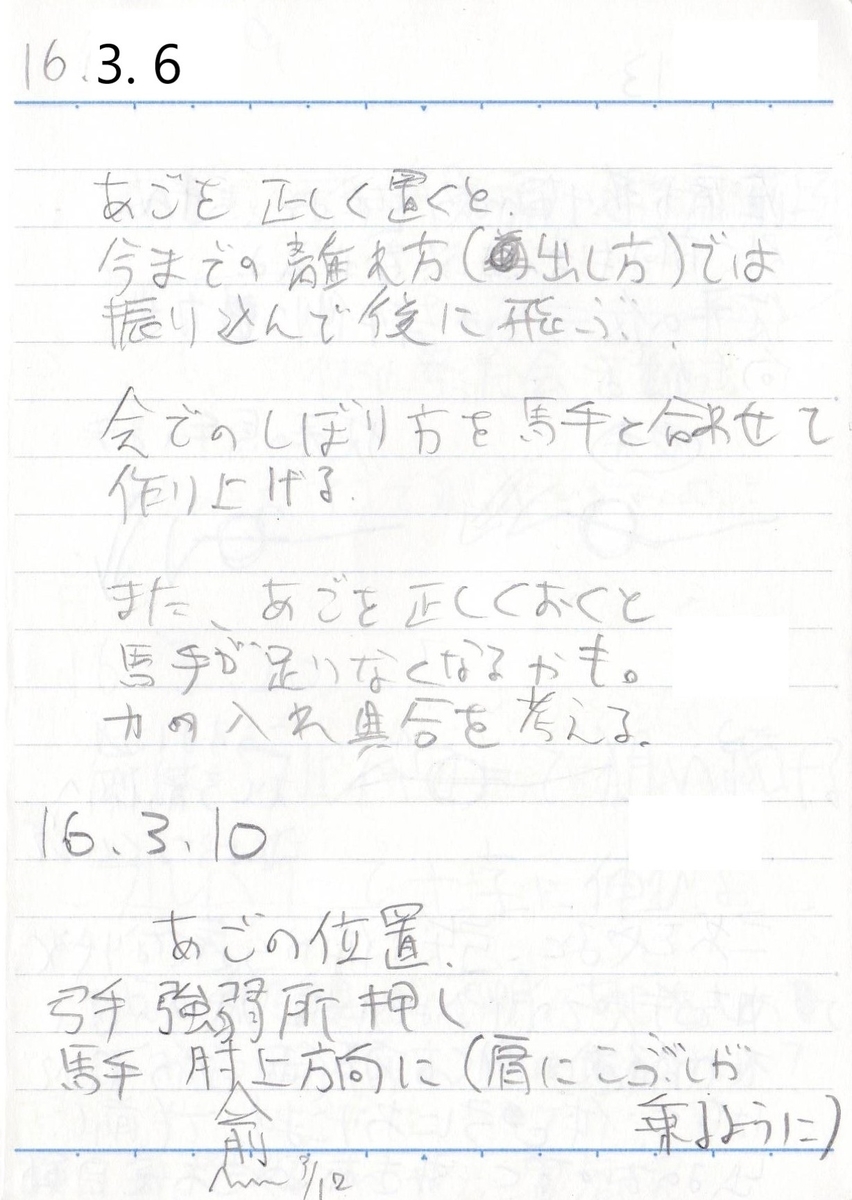 16.3.6
あごを 正しく置くと.
今までの離れ方(出し方)では
振り込んで後に飛ぶ.
会でのしぼり方を馬手と合わせて
作り上げる.
また、あごを正しくおくと
馬手が足りなくなるかも。
力の入れ具合を考える.
16.3.10
あごの位置.
弓手 強弱所 押し
馬手 肘上方向に(肩にこぶしが
乗るように)
会
前
3/12